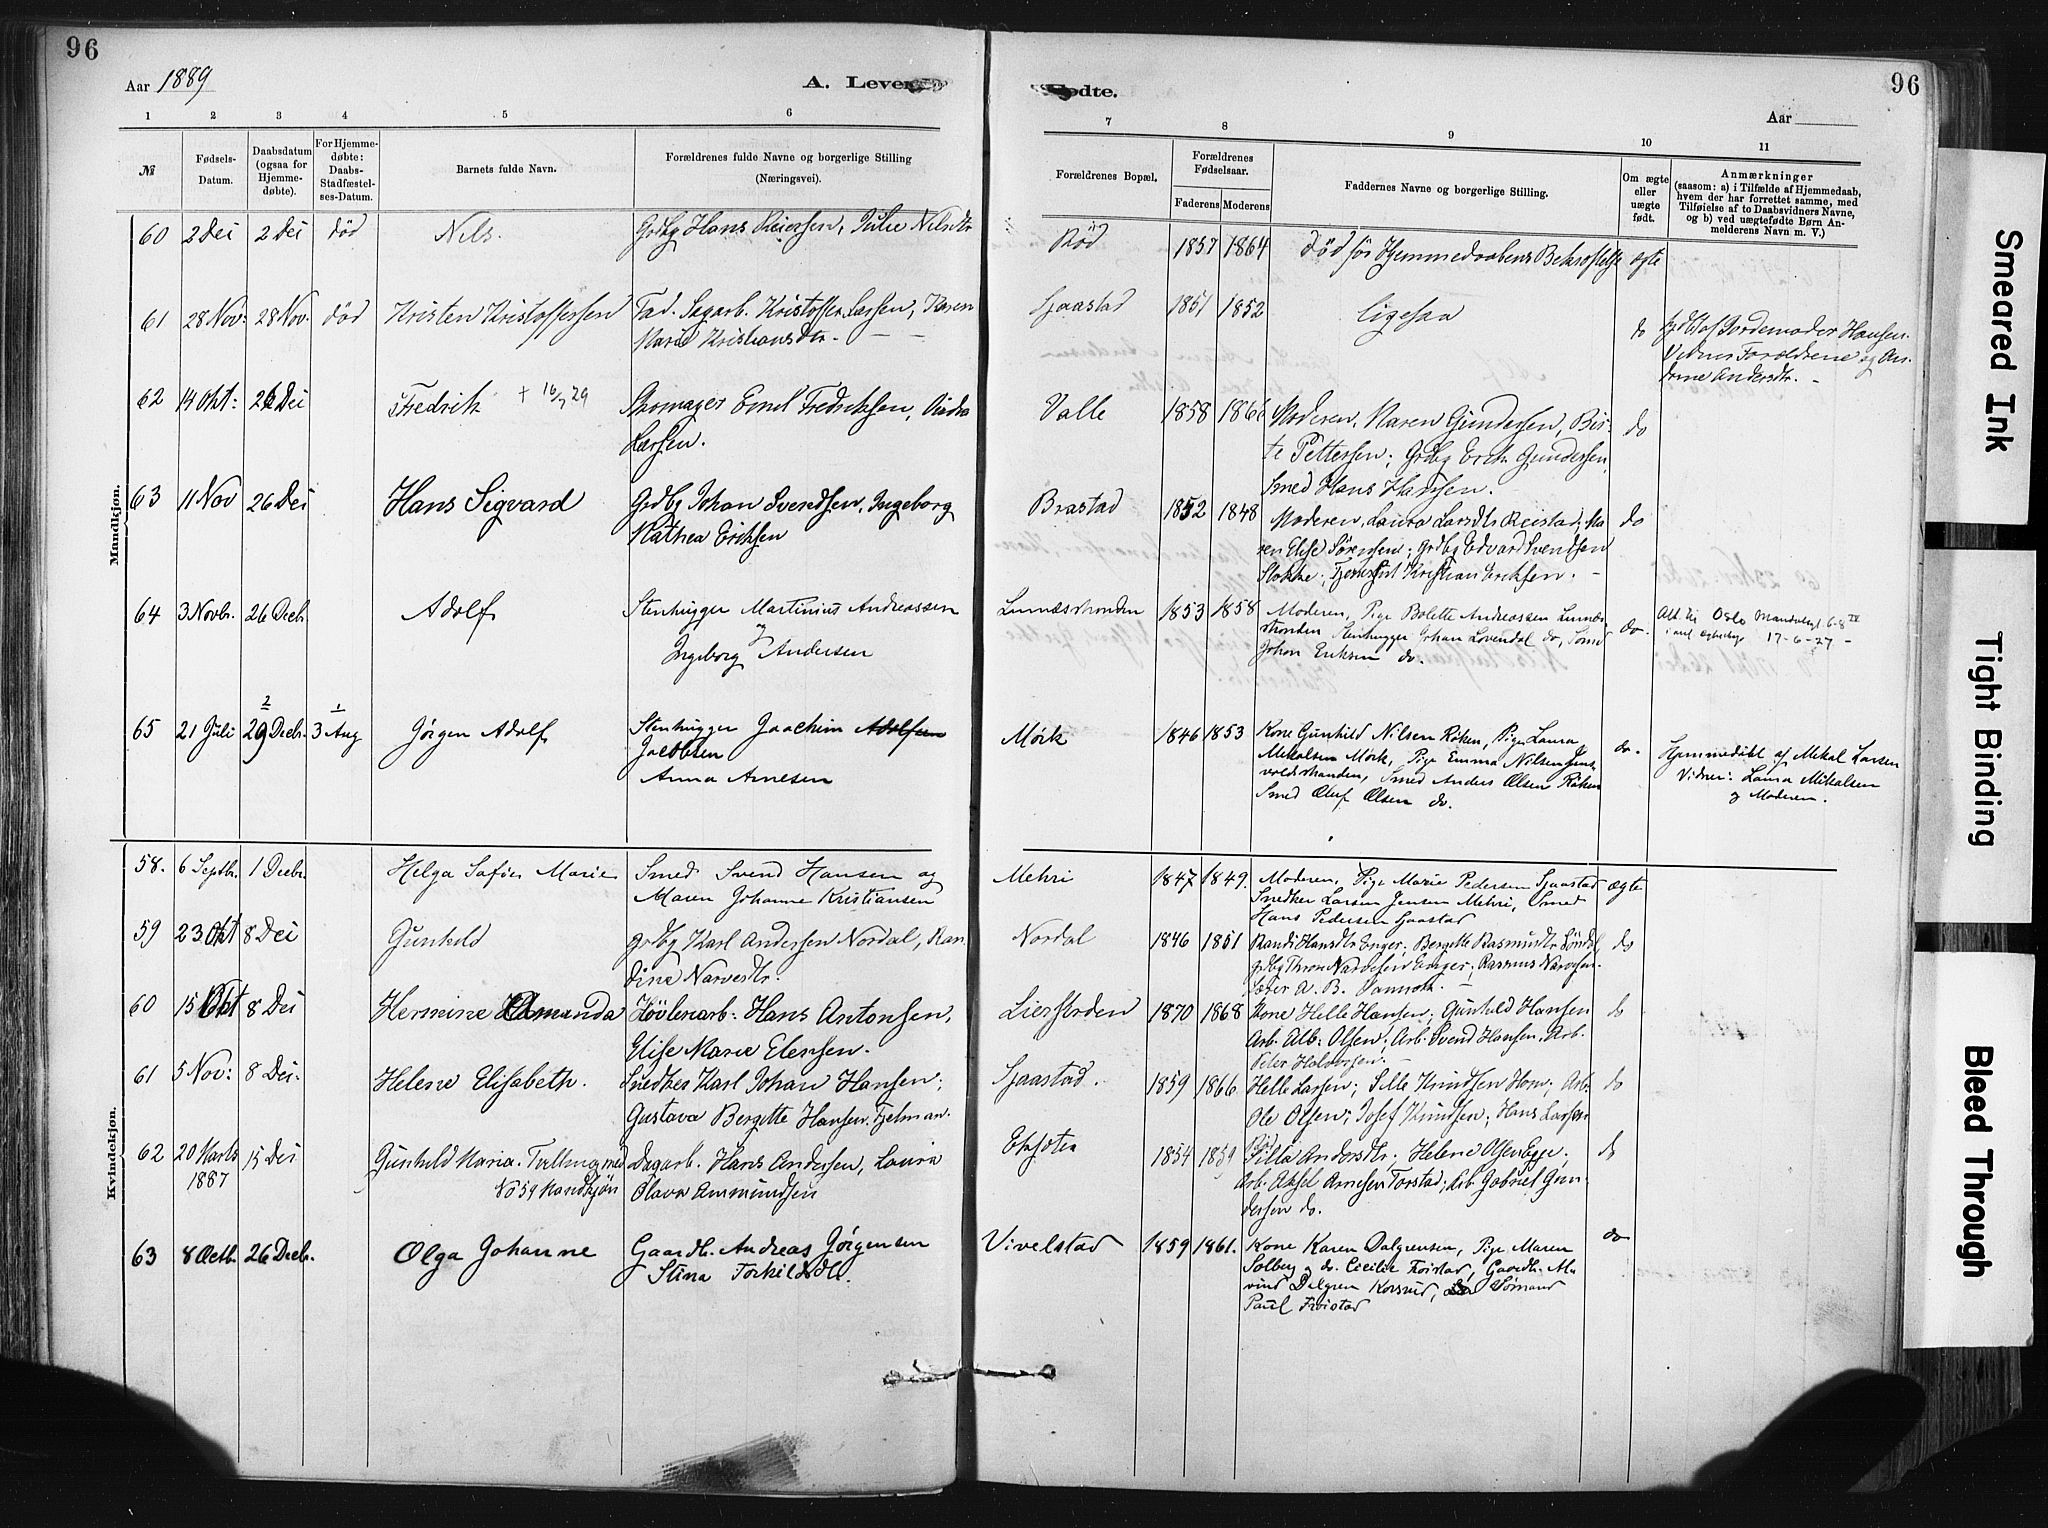 96
Aar 1889
A. Levende
1 2 3 4 5 6
№
Fødsels-Datum.
Daabsdatum (ogsaa for Hjemmedøbte).
For Hjemmedøbte: Daabs-Stadfæstelses-Datum.
Barnets fulde Navn.
Forældrenes fulde Navne og borgerlige Stilling (Næringsvei).
Mandkjøn.
60 2 Dei 2 Dei død Nils. Grdbg Hans Reiersen, Julie Nilsdtr
61 28 Nov: 28 Nov. død Kristen Kristoffersen Fad. Sagarb. Kristoffer Larsen, Karen
Marie Kristiansdtr.
62 14 Okt: 26 Dei Fredrik + 16/7 29 Skomager Emil Fredriksen,
Larsen.
63 11 Nov 26 Dei Hans Sigvard Grdbg Johan Svendsen, Ingeborg
Mathea Eriksen
64 3 Novbr. 26 Decb. Adolf Stenhugger Martinius Andreassen
og
Ingeborg Andersen
2 1
65 21 Juli 29 Decb. 3 Aug Jørgen Adolf Stenhugger Joachim Adolfsen
Jacobsen
Anna Arnesen
Kvindekjøn.
58. 6 Septbr. 1 Decbr. Helga Sofie Marie Smed Svend Hansen og
Maren Johanne Kristiansen
59 23 Okt 8 Dei Gunhild Grdbg Karl Andersen Nordal, Ran
dine Narvesdtr.
60 15 Okt 8 Dei Hermine Amanda Høvleriarb. Hans Antonsen,
Elise Marie Elensen.
61 5 Nov: 8 Dei. Helene Elisabeth. Snedker Karl Johan Hansen;
Gustava Bergitte Hansen.
62 20 Marts 15 Dei Gunhild Maria. Tvilling med Dagarb. Hans Andersen, Laura
1887 No 59 Mandkjøn Olava Ammundsen
63 8 Octb. 26 Decb. Olga Johanne Gaardb. Andreas Jørgensen
Stina Torkildsdtr.
96
Fødte.
Aar
7 8 9 10 11
Forældrenes Bopæl.
Forældrenes Fødselsaar.
Faderens Moderens
Faddernes Navne og borgerlige Stilling.
Om ægte eller uægte født.
Anmærkninger
(saasom: a) i Tilfælde af Hjemmedaab, hvem der har forrettet samme, med Tilføielse af to Daabsvidners Navne, og b) ved uægtefødte Børn Anmelderens Navn m. V.)
Rød 1857 1864 død før Hjemmedaabens Bekræftelse ægte
Gjaastad 1851 1852 ligesaa do Hjdbt af Jordemoder Hansen.
Vidner Forældrene og An-
drine Andersdtr.
Valle 1858 1866 Moderen, Maren Gundersen, Bir-
te Pettersen; Grdbg Erik Gundersen do
Smed Hans Hansen.
Brastad 1852 1848 Moderen, Laura Larsdtr Reistad, Ma- do
ren Elise Sørensen; Grdbg Edvard Svendsen
Stokke; Kristian Eriksen.
1853 1858 Moderen, Pige Bolette Andreassen
Stenhugger Johan Løvendal do, Sømd do.
Johan Eriksen do.
Att. til Oslo
17-6-27
Mørk 1846 1853 Kone Gunhild Nilsen Røken, Pige Laura
Mikalsen Mørk, Pige Emma Nilsen
Smed Anders Olsen Røken do.
Smed Oluf Olsen do.
Hjemmedøbt af Mikal Larsen
Vidner: Laura Mikalsen
og Moderen.
Mehri 1847 1849. Moderen, Pige Marie Pedersen Gjaastad ægte
Snedker Larsen Jensen Mehri, Smed
Hans Pedersen Gjaastad
Nordal 1846 1851 Randi Hansdtr Enger; Bergitte Rasmusdtr do
Grdbg Thron Narvesen Enger; Rasmus Narvesen
1870 1868 Kone Helle Hansen; Gunhild Hansen do
Arb. Alb: Olsen; Arb. Svend Hansen, Arb.
Peter Halvorsen.
Gjaastad 1859 1866 Helle Larsen; Sille Knudsen Horn; Arb. do
Ole Olsen; Josef Knudsen; Hans Larsen
1854 1859 Silla Andersdtr. Helene Olsen Egge; do
Arb. Aksel Arnesen Torstad; Arb. Gabriel Gun-
dersen do.
Vivelstad 1859 1861. Kone Karen Dalgrensen, Pige Maren do
Solberg, do. Cecilie Froistad, Gaardb. Al-
vind Dalgren Korsrud, Sømand
Paul Froistad
Smeared Ink
Tight Binding
Bleed Through